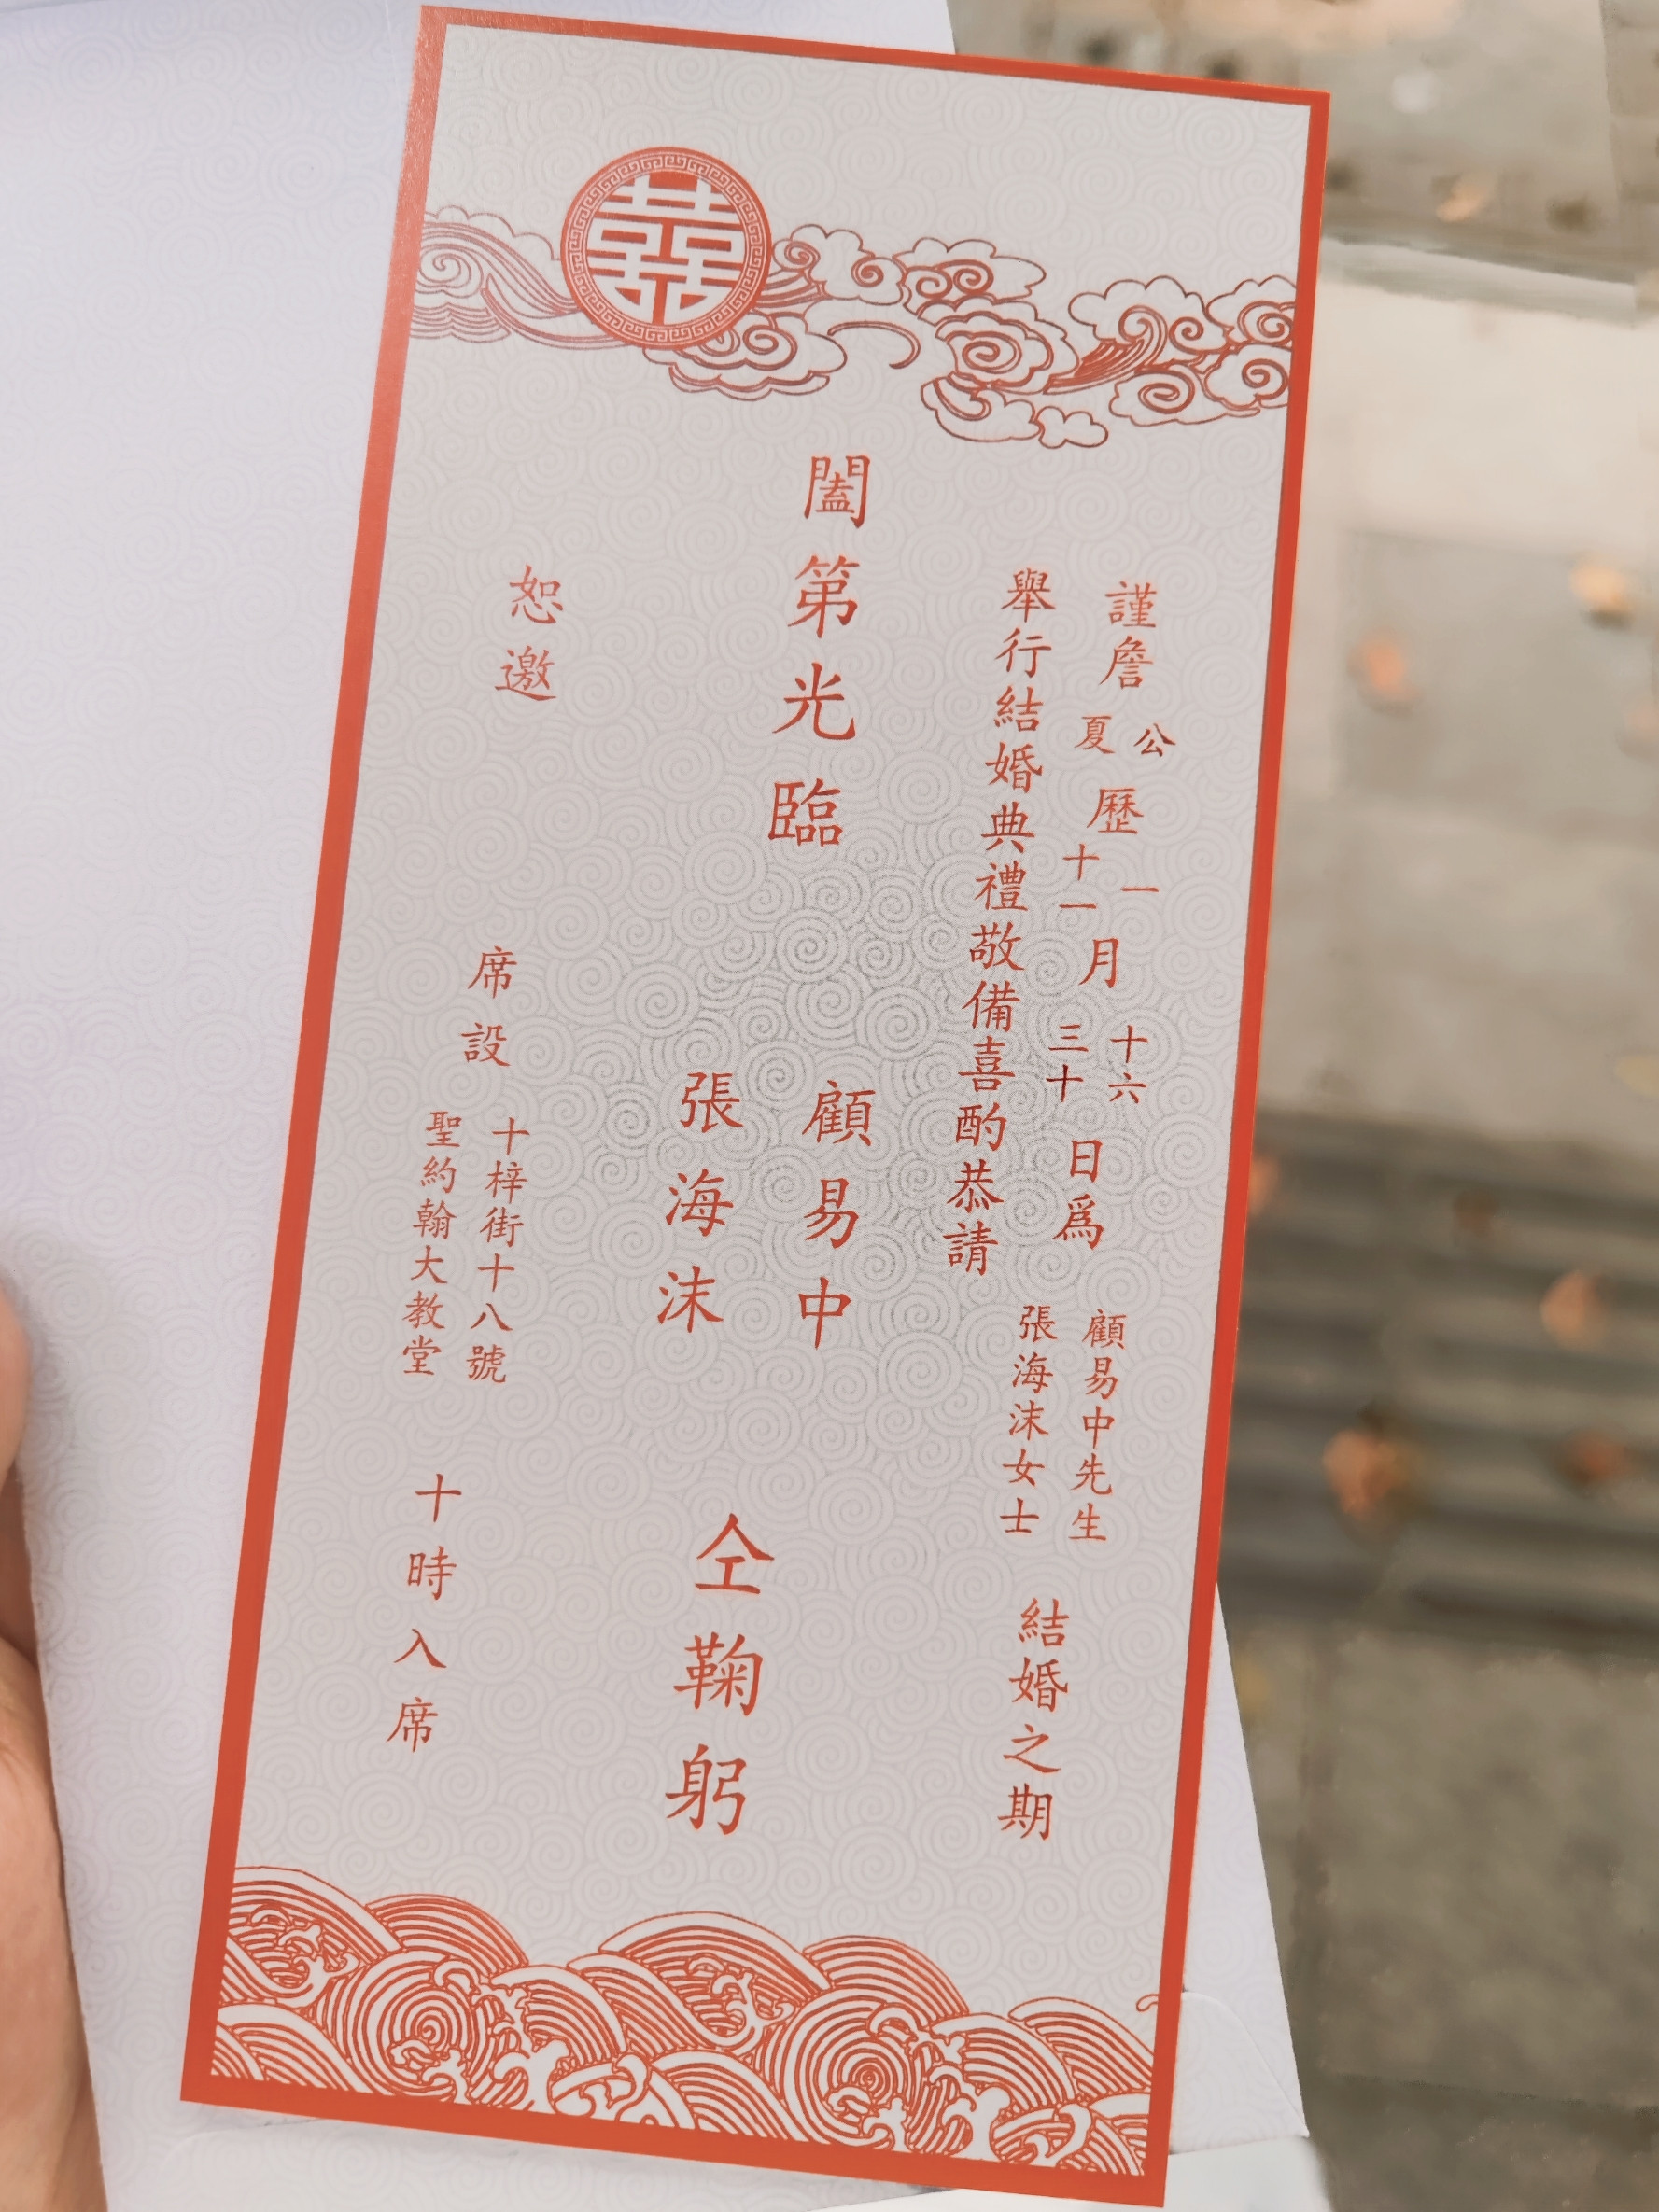 囍
謹詹公夏歷一十一月十六三十日爲顧易中先生張海沫女士結婚之期
舉行結婚典禮敬備喜酌恭請
闔第光臨
顧易中
張海沫
仝鞠躬
恕邀
席設十梓街十八號聖約翰大教堂十時入席